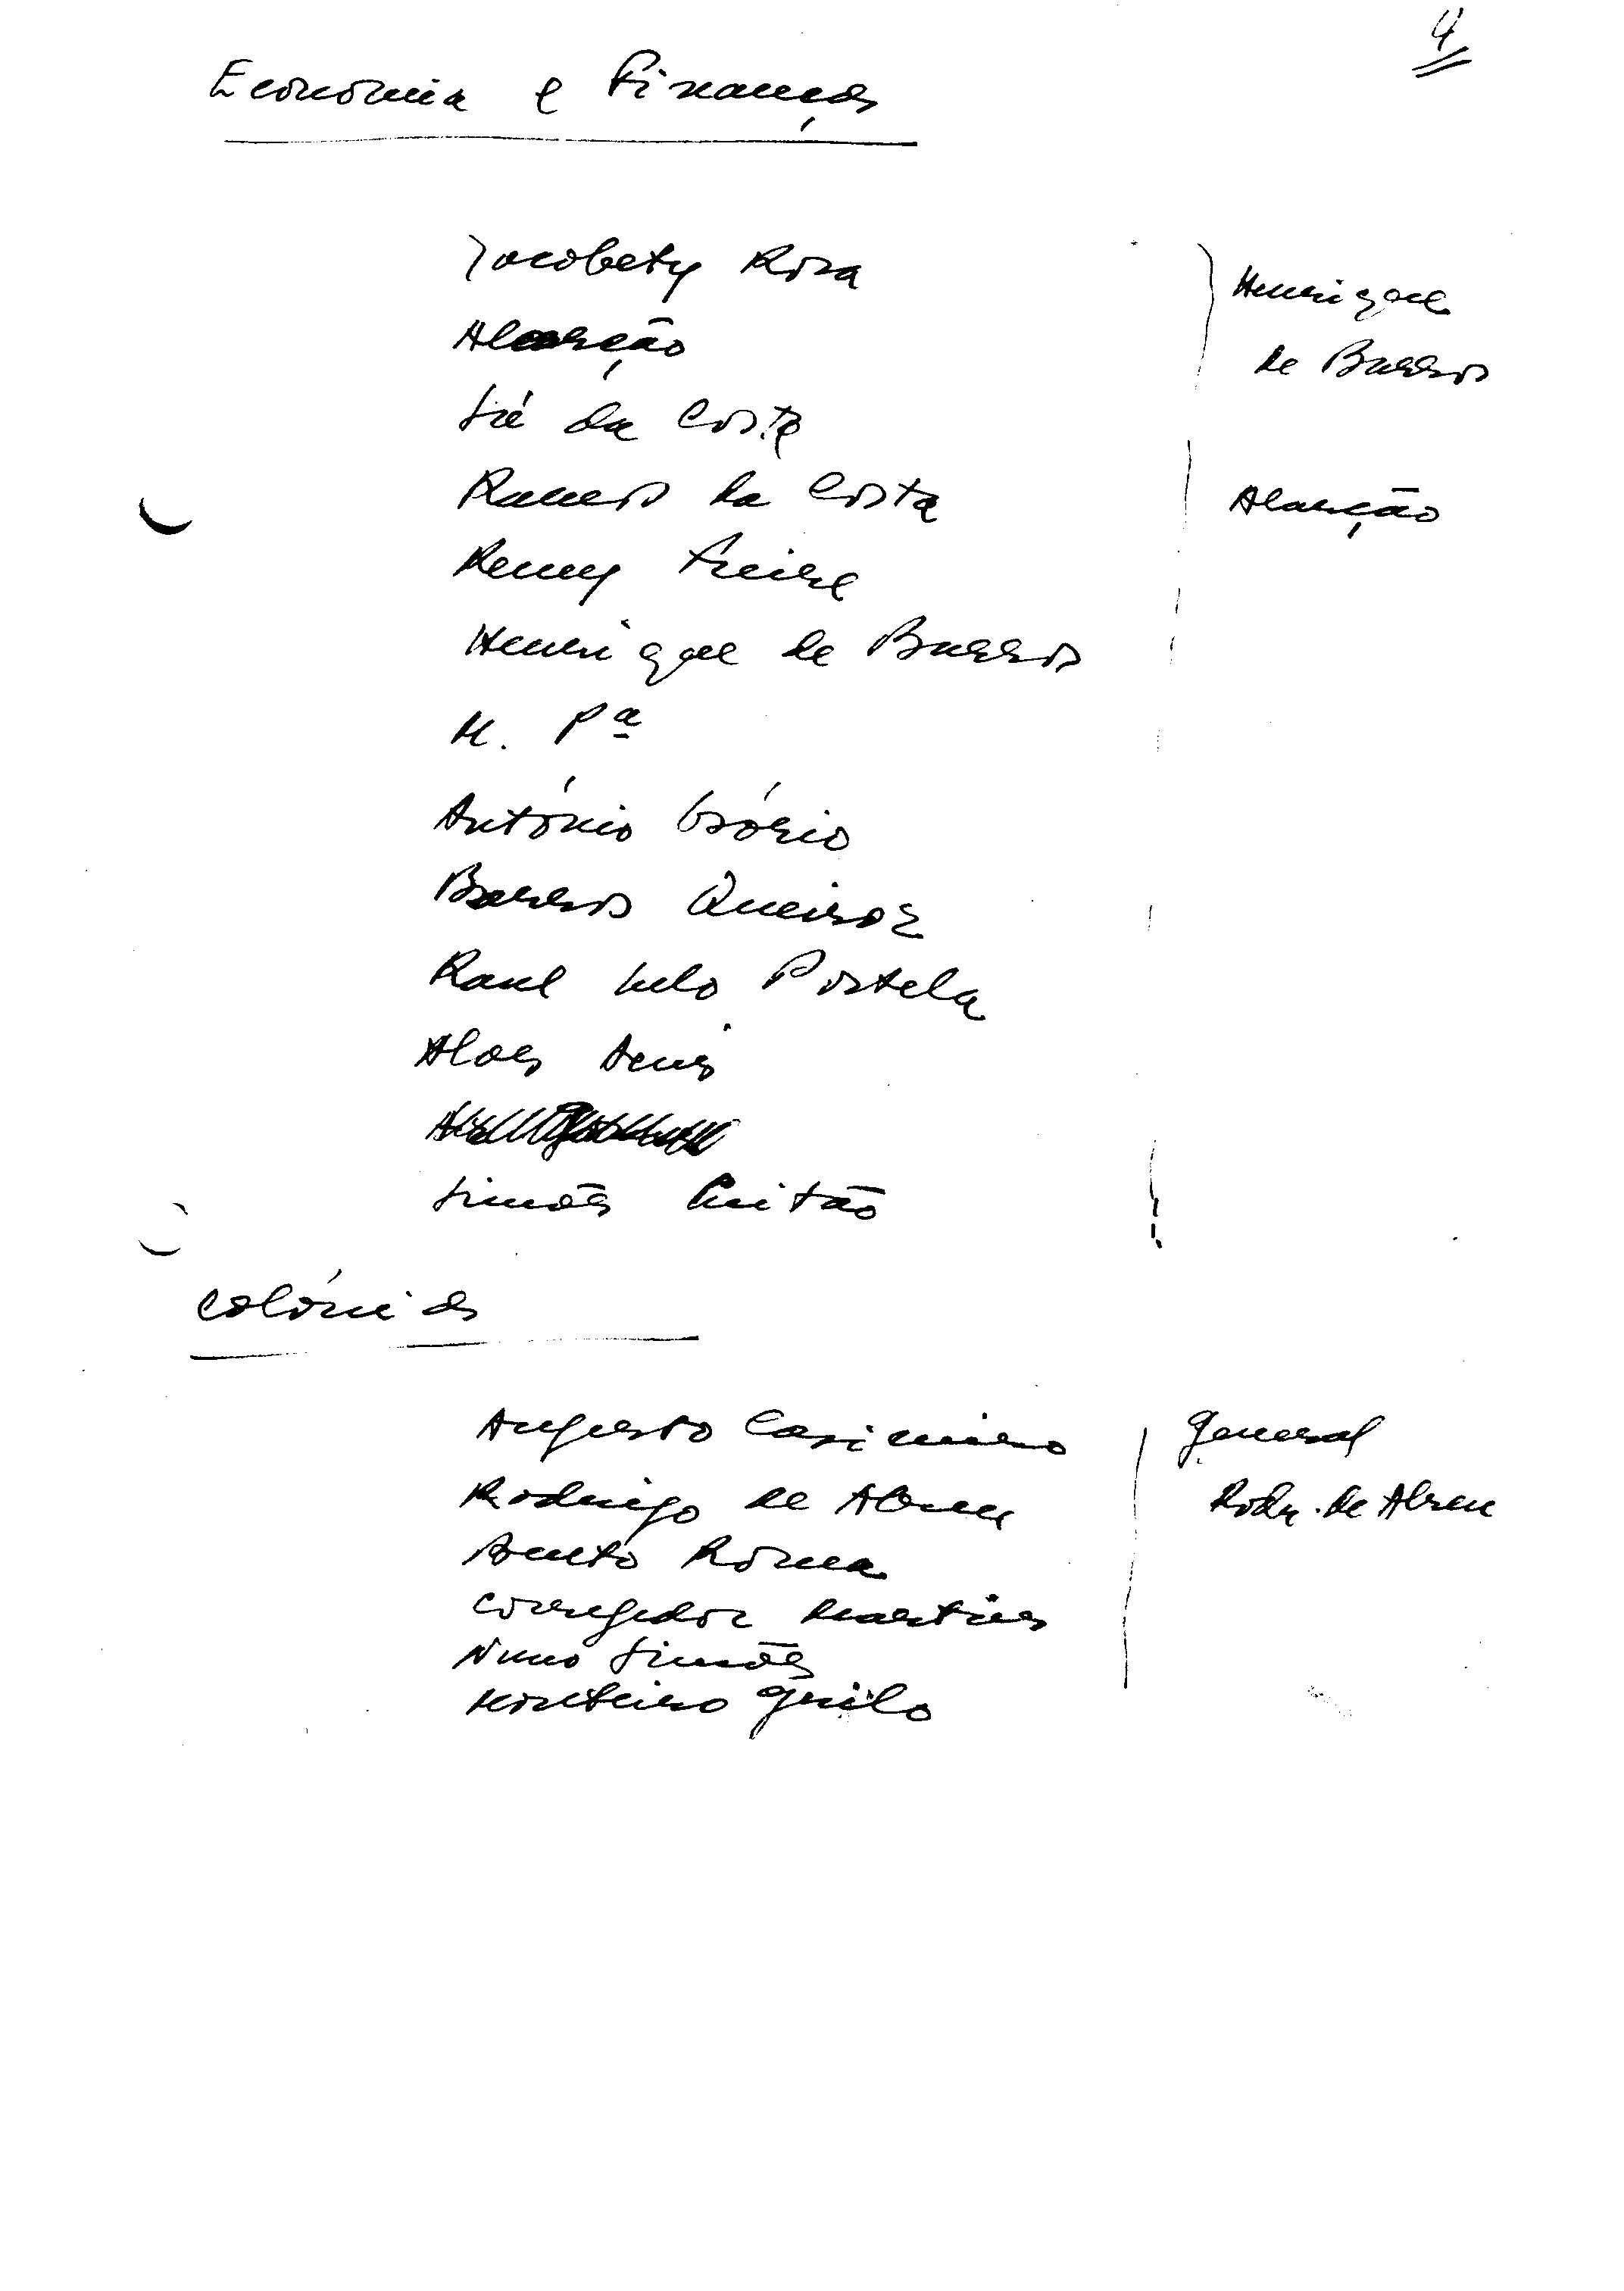 4
Economia e Finanças
Jacobety Rosa
Henrique
Alarcão
de Barros
Sá da Costa
Ramos da Costa
Alarcão
Remy Freire
Henrique de Barros
M. Pª
António Osório
Barros Queiroz
Raul Melo Portela
Simões Leitão
Colónias
Augusto Casimiro
General
Rodrigo de Abreu
Rodr. de Abreu
Bento Roma
Corregedor Martins
Nuno Simões
Monteiro Grilo